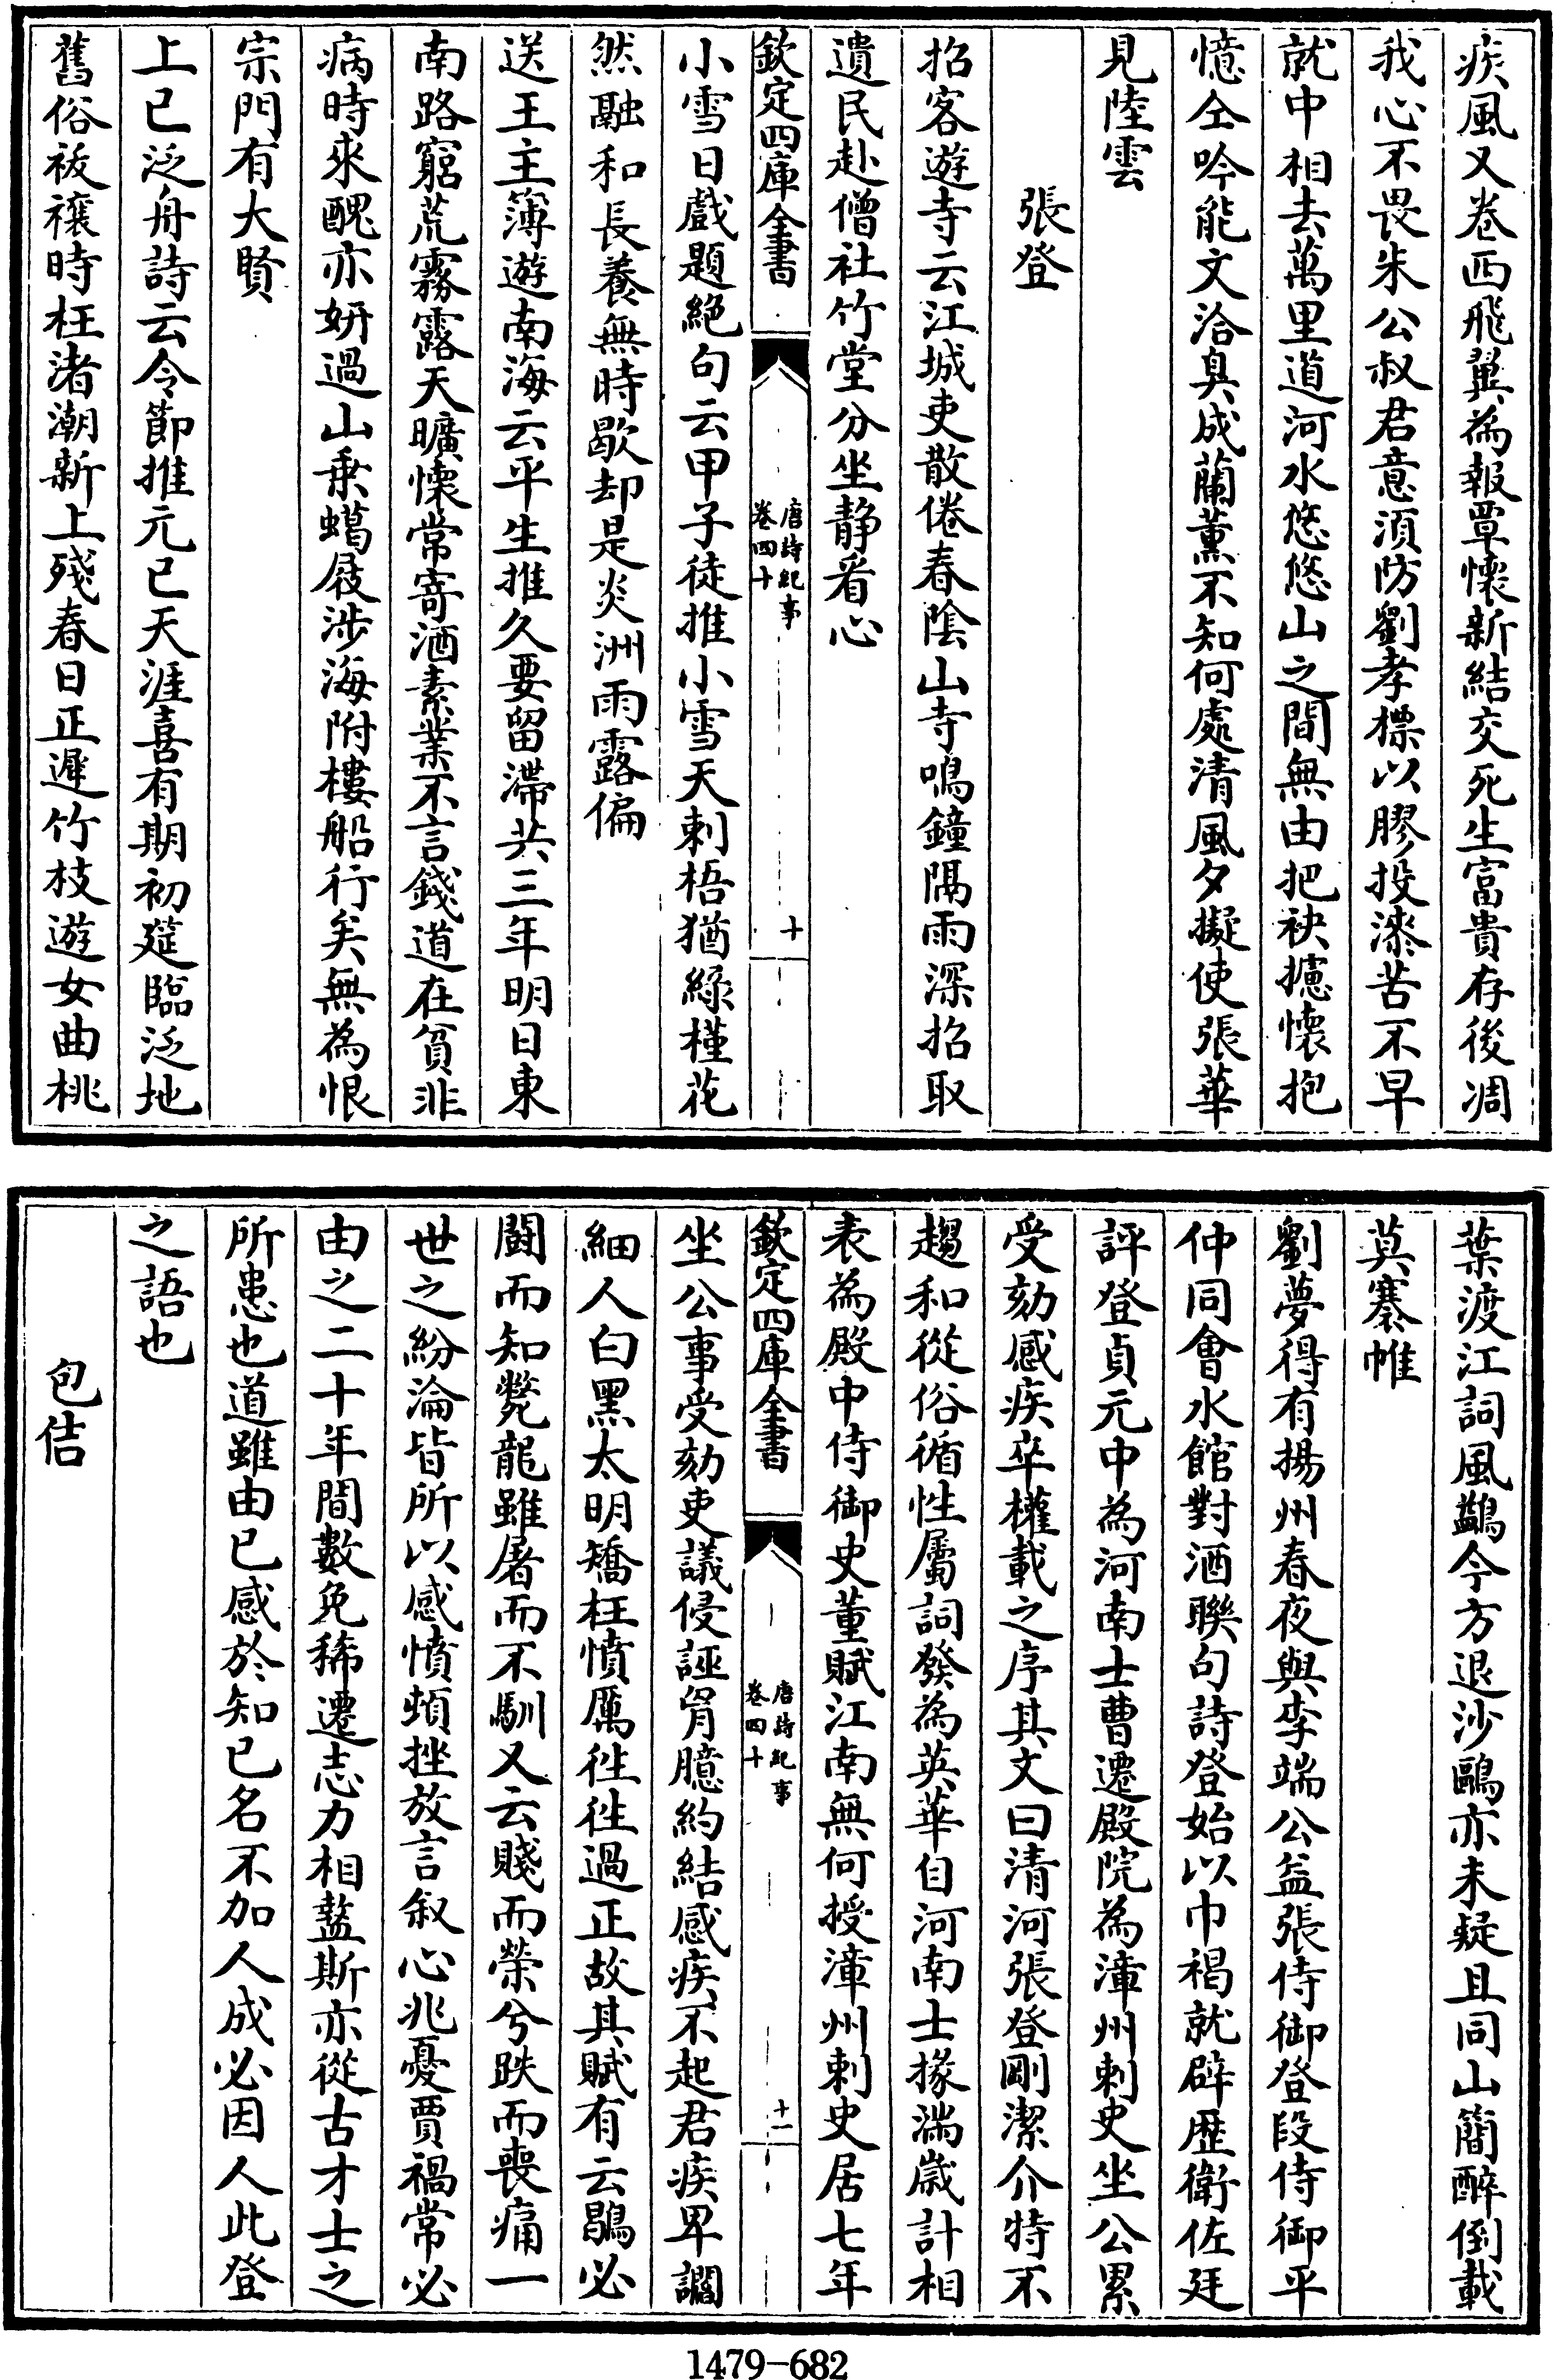 疾風又卷西飛翼為報覃懷新結交死生富貴存後凋
我心不畏朱公叔君意須防劉孝標以膠投漆苦不早
就中相去萬里道河水悠悠山之間無由把袂攄懷抱
憶仝吟能文洽臭成蘭薰不知何處清風夕擬使張華
見陸雲
張登
招客遊寺云江城吏散倦春陰山寺鳴鐘隔雨深招取
遺民赴僧社竹堂分坐静看心
欽定四庫全書
唐詩紀事
卷四十
十
小雪日戲題絶句云甲子徒推小雪天刺梧猶綠槿花
然融和長養無時歇却是炎洲雨露偏
送王主簿遊南海云平生推久要留滯共三年明日東
南路窮荒霧露天曠懷常寄酒素業不言錢道在貧非
病時來醜亦妍過山乗蠟屐涉海附樓船行矣無為恨
宗門有大賢
上巳泛舟詩云令節推元巳天涯喜有期初筵臨泛地
舊俗祓禳時枉渚潮新上殘春日正遲竹枝遊女曲桃
葉渡江詞風鷁今方退沙鷗亦未疑且同山簡醉倒載
莫褰帷
劉夢得有揚州春夜與李端公益張侍御登段侍御平
仲同會水館對酒聯句詩登始以巾褐就辟歴衛佐廷
評登貞元中為河南士曹遷殿院為漳州刺史坐公累
受劾感疾卒權載之序其文曰清河張登剛潔介特不
趨和從俗循性屬詞發為英華自河南士掾滿歲計相
表為殿中侍御史董賦江南無何授漳州刺史居七年
欽定四庫全書
唐詩紀事
卷四十
十一
坐公事受劾吏議侵誣胷臆約結感疾不起君疾卑讕
細人白黑太明矯枉憤厲徃徃過正故其賦有云鶡必
鬬而知斃龍雖屠而不馴又云賤而榮兮跌而喪痛一
世之紛淪皆所以感憤頓挫放言叙心兆憂賈禍常必
由之二十年間數免稀遷志力相盭斯亦從古才士之
所患也道雖由已感於知已名不加人成必因人此登
之語也
包佶
1479-682